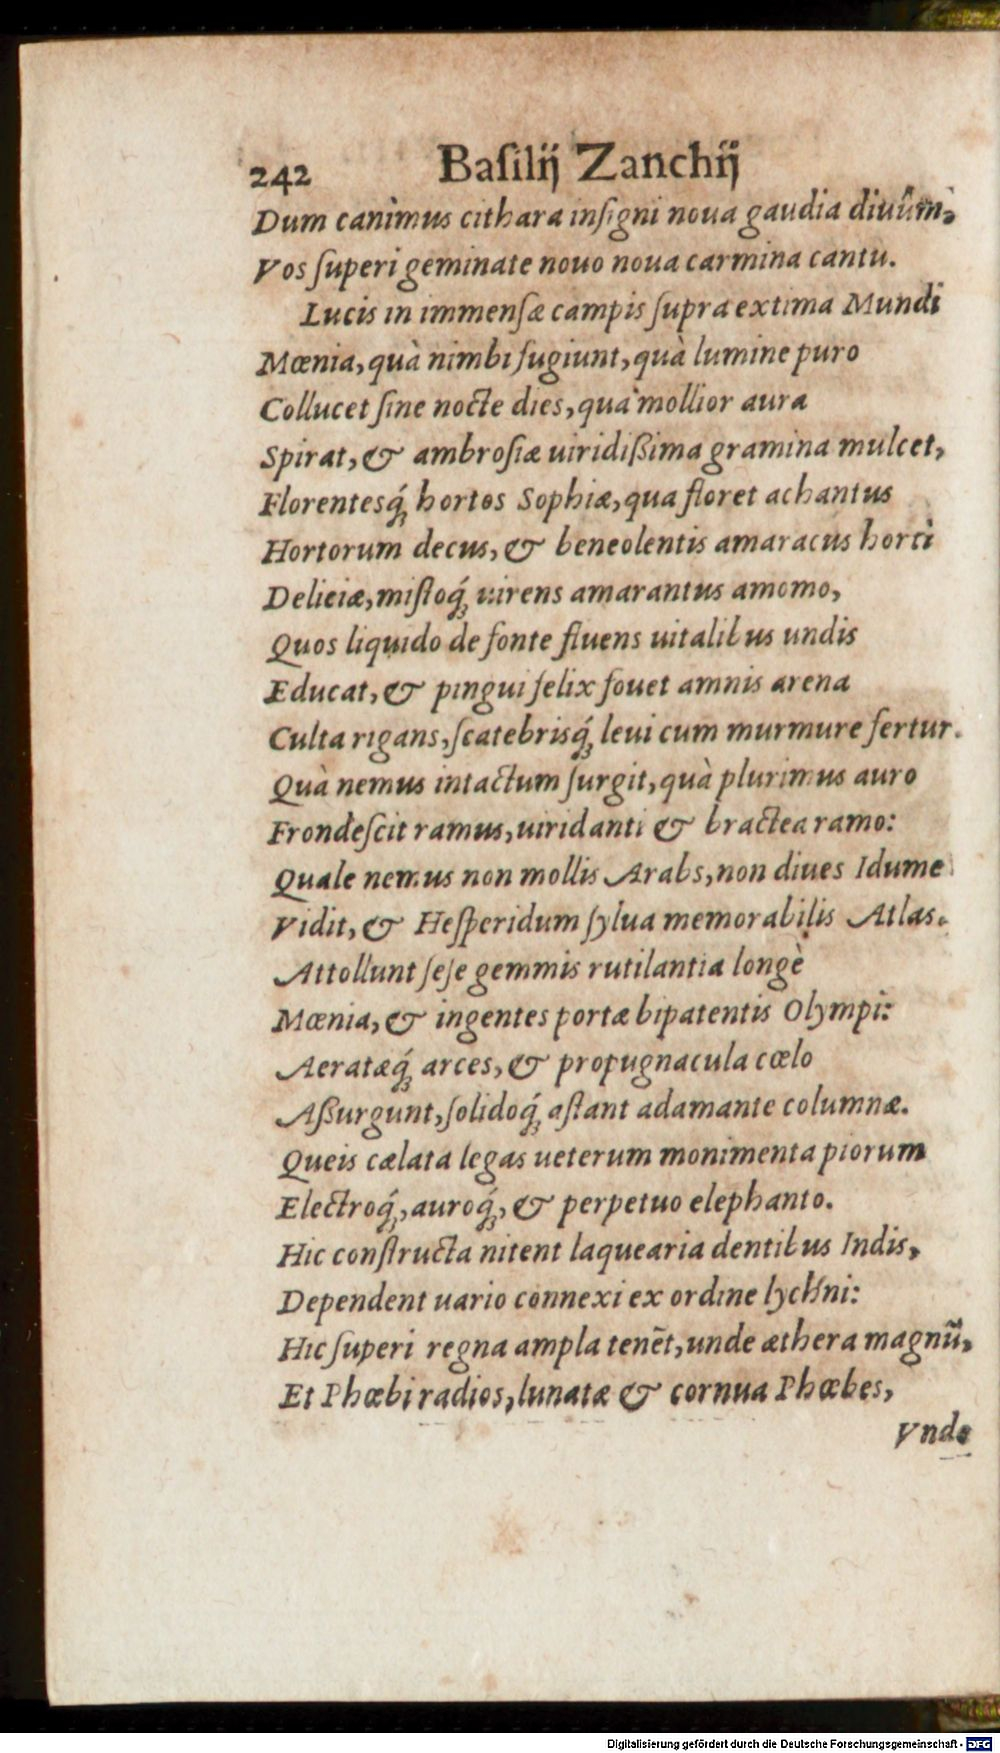 242 Baſilij Zanchij
Dum canimus cithara inſigni noua gaudia diuûm,
Vos ſuperi geminate nouo noua carmina cantu.
Lucis in immenſæ campis ſupra extima Mundi
Mœnia, quà nimbi fugiunt, quà lumine puro
Collucet ſine nocte dies, quà mollior aura
Spirat, & ambroſiæ uiridißima gramina mulcet,
Florentesq́; hortos Sophiæ, qua floret achantus
Hortorum decus, & beneolentis amaracus horti
Deliciæ, miſtoq́; uirens amarantus amomo,
Quos liquido de fonte fluens uitalibus undis
Educat, & pingui felix fouet amnis arena
Culta rigans, ſcatebrisq́; leui cum murmure fertur.
Quà nemus intactum ſurgit, quà plurimus auro
Frondeſcit ramus, uiridanti & bractea ramo:
Quale nemus non mollis Arabs, non diues Idume
Vidit, & Heſperidum ſylua memorabilis Atlas.
Attollunt ſeſe gemmis rutilantia longè
Mœnia, & ingentes portæ bipatentis Olympi:
Aeratæq́; arces, & propugnacula cœlo
Aßurgunt, ſolidoq́; aſtant adamante columnæ.
Queis cælata legas ueterum monimenta piorum
Electroq́;, auroq́;, & perpetuo elephanto.
Hic conſtructa nitent laquearia dentibus Indis,
Dependent uario connexi ex ordine lychni:
Hic ſuperi regna ampla tenẽt, unde æthera magnũ,
Et Phœbi radios, lunatæ & cornua Phœbes,
Vnde
Digitalisierung gefördert durch die Deutsche Forschungsgemeinschaft - DFG